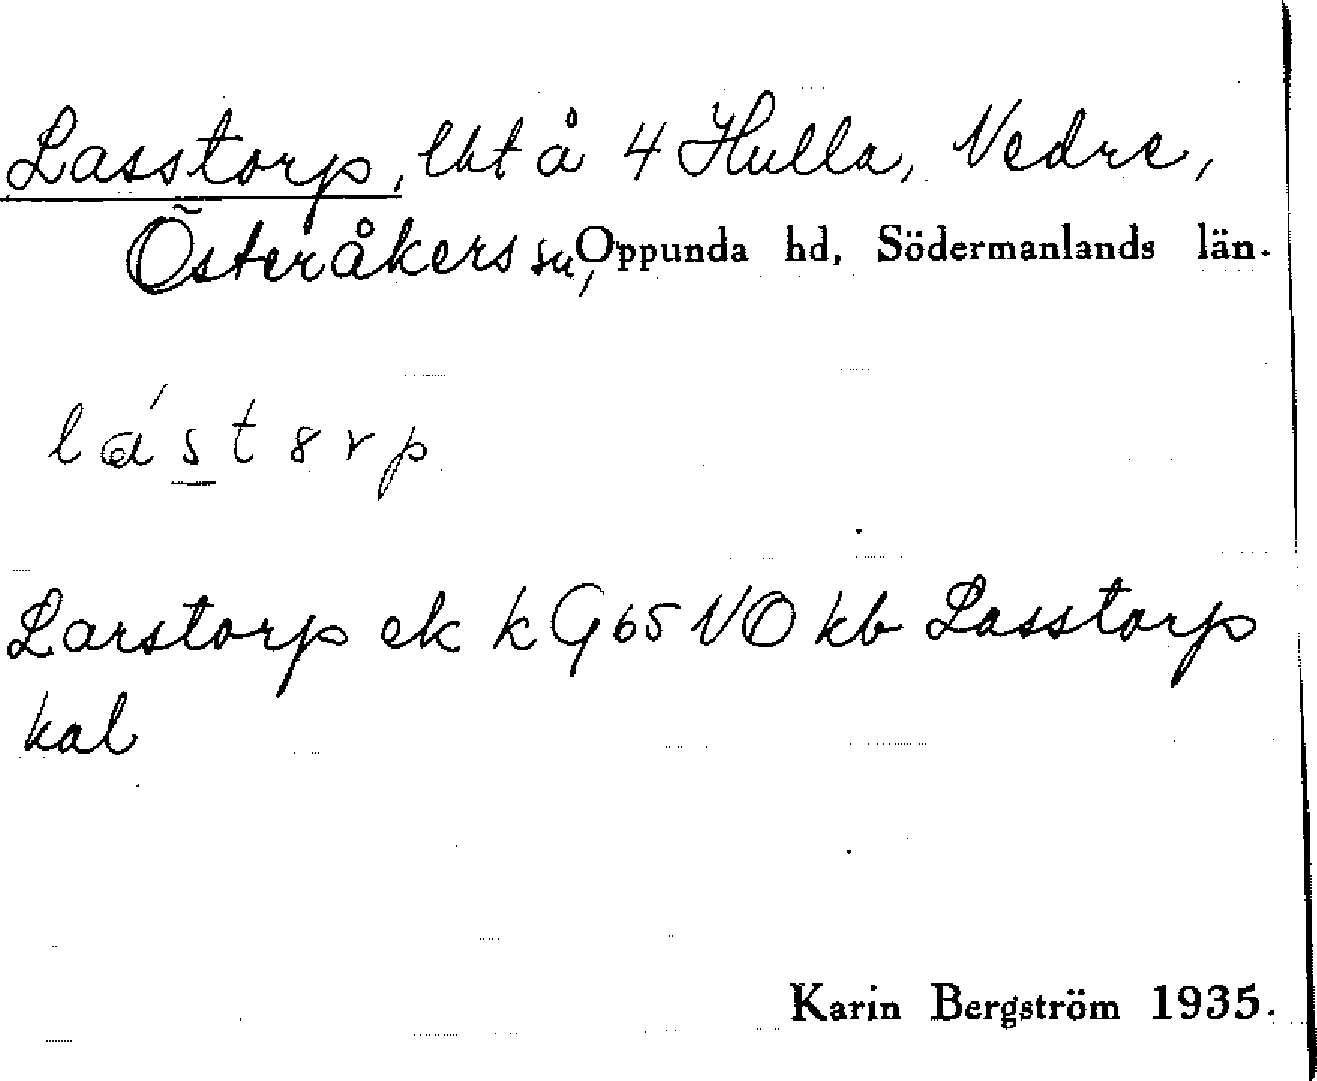 Lasstorp, lht å 4 Hulla, Nedre,
Österåkers sn, Oppunda hd, Södermanlands län.
lástorp
Larstorp ek k G 65 NO kb Lasstorp
kal
Karin Bergström 1935.